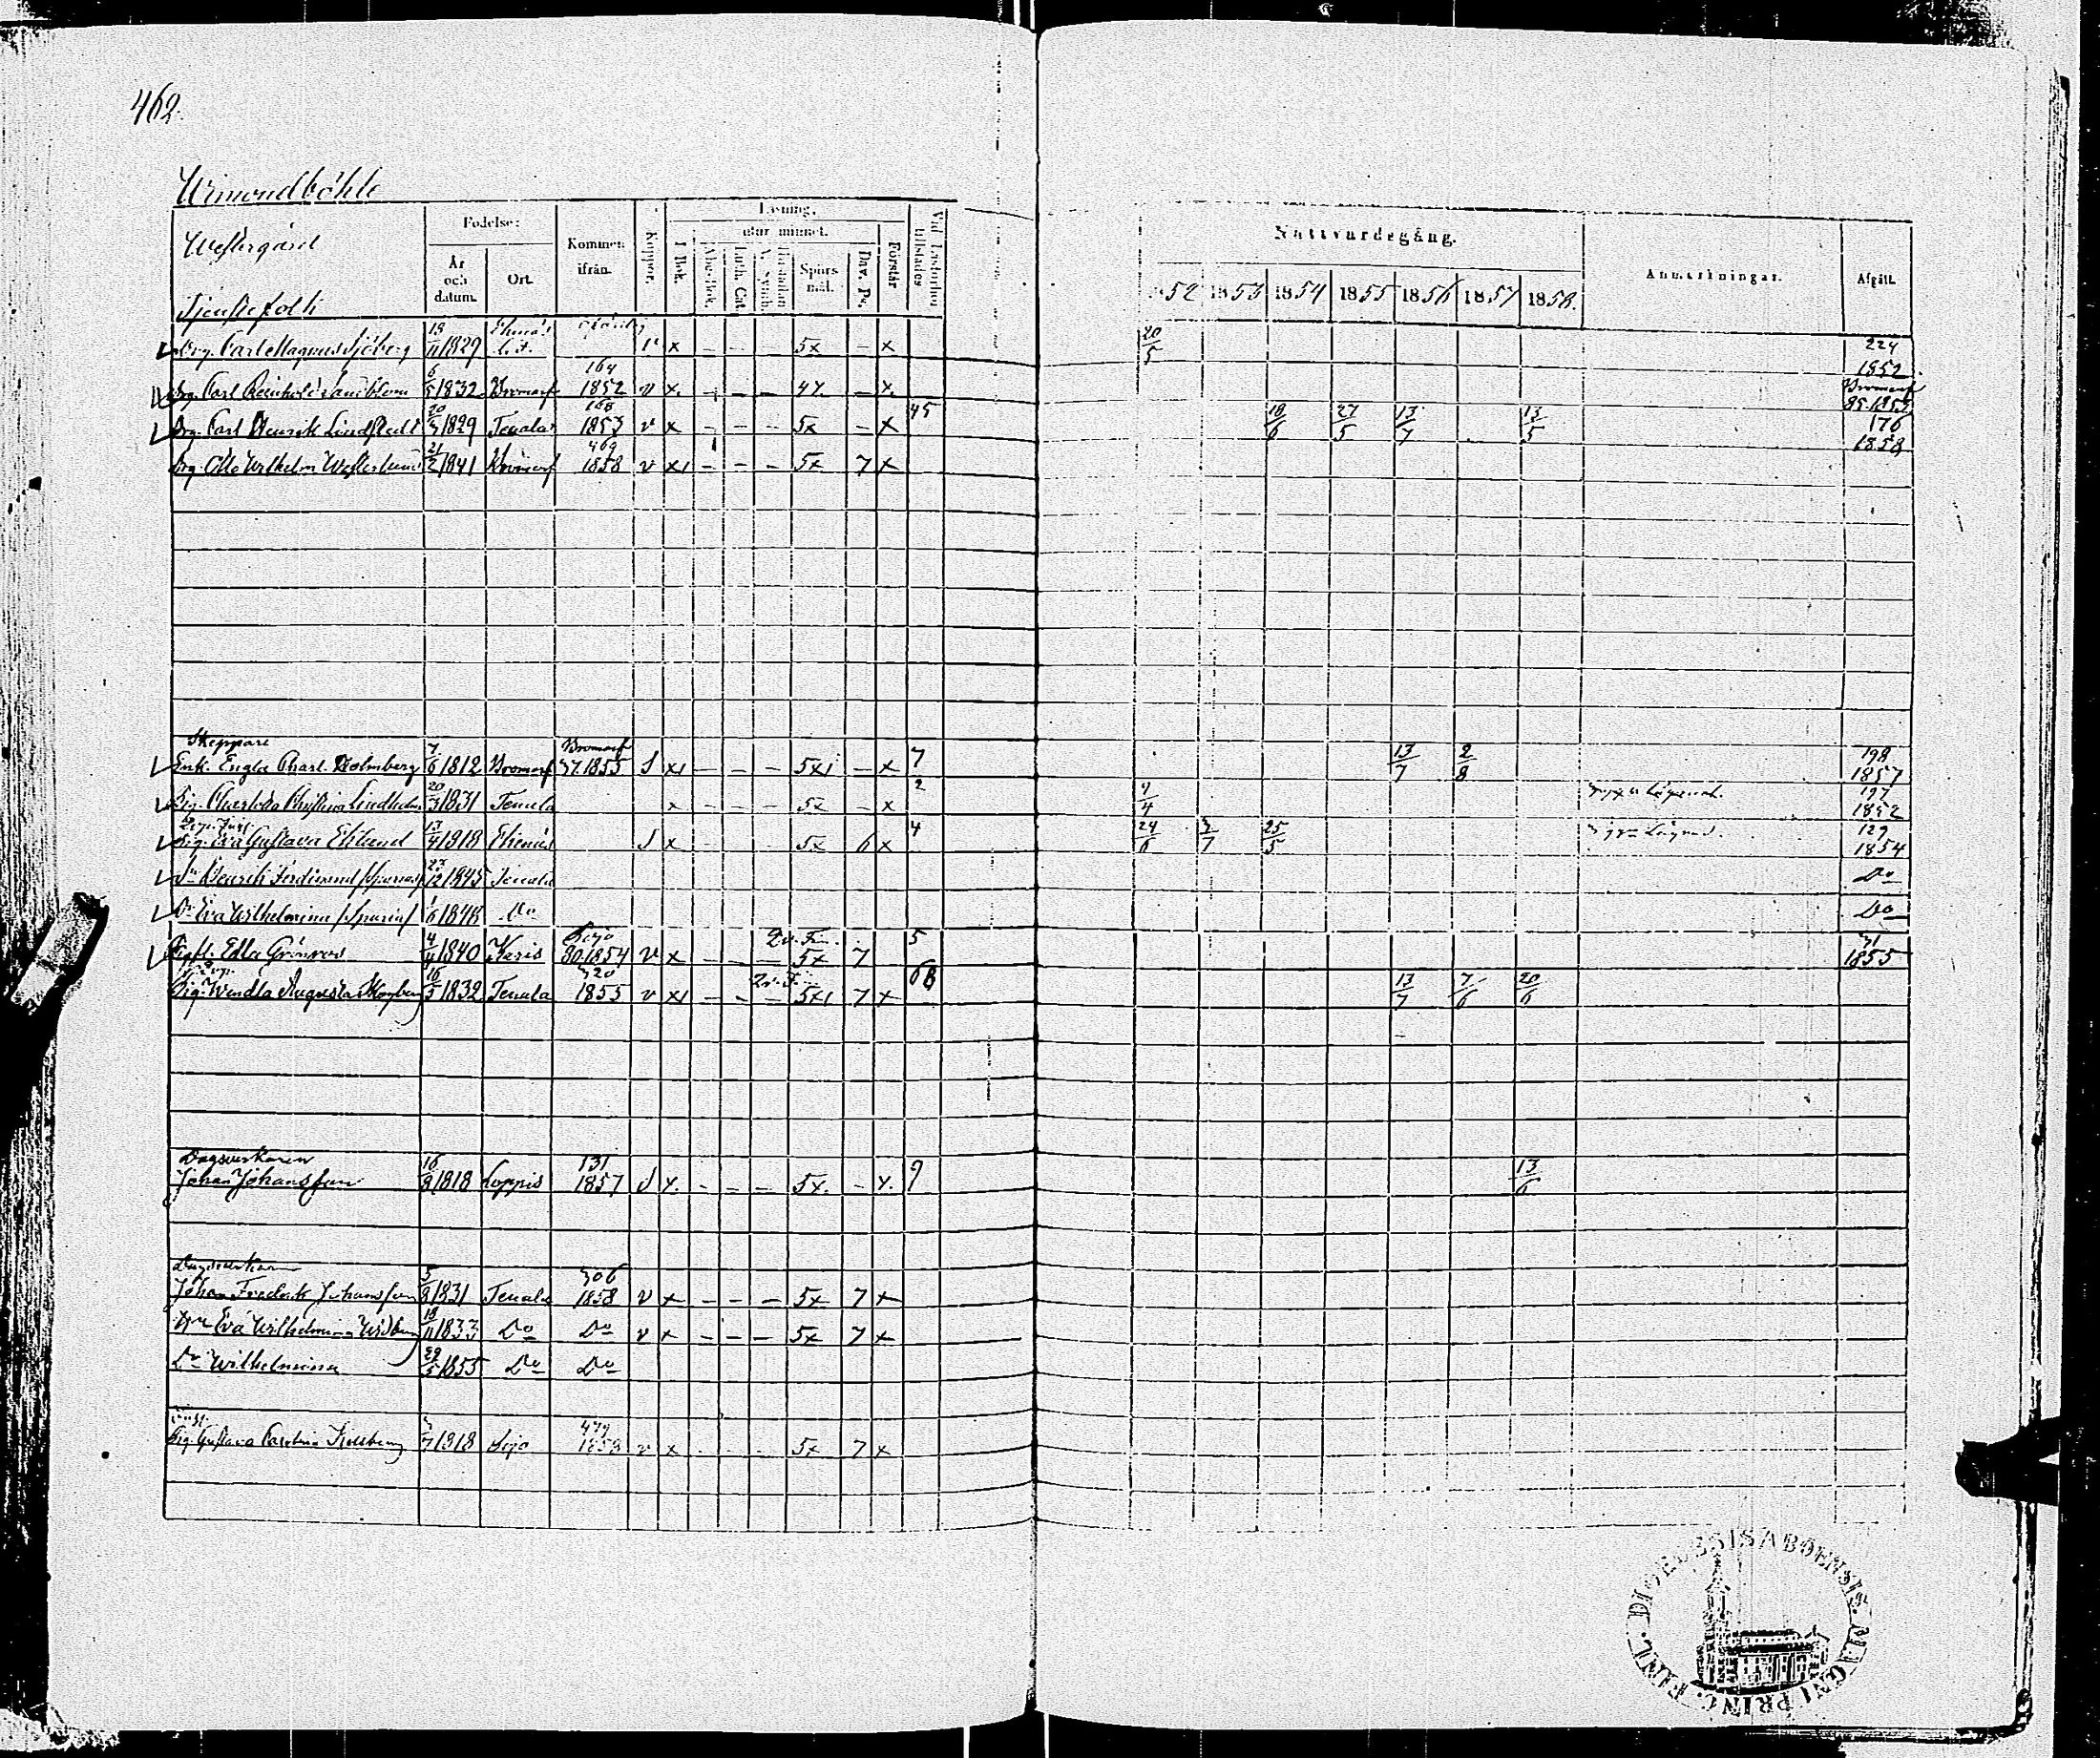 462.
Westergård
Tjenstefolk
Födelse:
År och datum.
Ort.
Kommen ifrån.
Koppor.
Läsning.
utur minnet.
I Bok.
Abc-Bok.
Luth. Cat.
Spörsmål.
Dav. Ps.
Förstår
Vid Läsförhör tillstädes
Nattvardsgång.
1852 1853 1854 1855 1856 1857 1858.
Anmärkningar.
Afgått.
Drg. Carl Magnus Sjöberg 19/11 1829 Ekenäs x - - - 5x - x 20/5 224 1852
Drg. Carl Reinhold Sandblom 6/5 1832 Bromarf 164 1852 v x. - - - 4x. - x. Bromarf 85. 1853
Drg. Carl Henrik Lindstedt 20/3 1829 Tenala 168 1853 v x - - - 5x - x 45 18/6 27/5 13/7 13/5 176 1858
Drg. Otto Wilhelm Westerlund 21/2 1841 Bromarf 469 1858 v x - - - 5x 7 x
Skeppare
Enk. Engla Charl. Holmberg 7/6 1812 Bromarf Bromarf 37. 1855 S x - - - 5x - x 7 13/7 2/8 198 1857
Pig. Charlotta Christina Lindholm 20/3 1831 Tenala x - - - 5x - x 2 4/4 197 1852
Pig. Eva Gustava Eklund 13/4 1818 Ekenäs S x 5x 6 x 4 24/6 3/7 25/5 129 1854
Sn Henrik Ferdinand 27/12 1845 Tenala Do
Dr Eva Wilhelmina /Spuria/ 1/6 1848 Do Do
Edla Grönroos 4/4 1840 Karis Pojo 80. 1854 v x - - - 5x 7 5 31 1855
Pig. Wendla Augusta 16/5 1832 Tenala 320 1855 v x - - - 5x 7 x 68 13/7 7/6 20/6
Dagsverkaren
Johan Johansson 16/8 1818 Loppis 131 1857 S x. - - - 5x. - x. 9 13/6
Dagsverkaren
Johan Fredrik Johansson 5/8 1831 Tenala 306 1858 v x - - - 5x 7 x
Hu Eva Wilhelmina Widberg 18/11 1833 Do Do v x - - - 5x 7 x
Dr Wilhelmina 29/5 1855 Do Do
Pig. Gustava Carolina 1818 1858 v x 5x 7 x